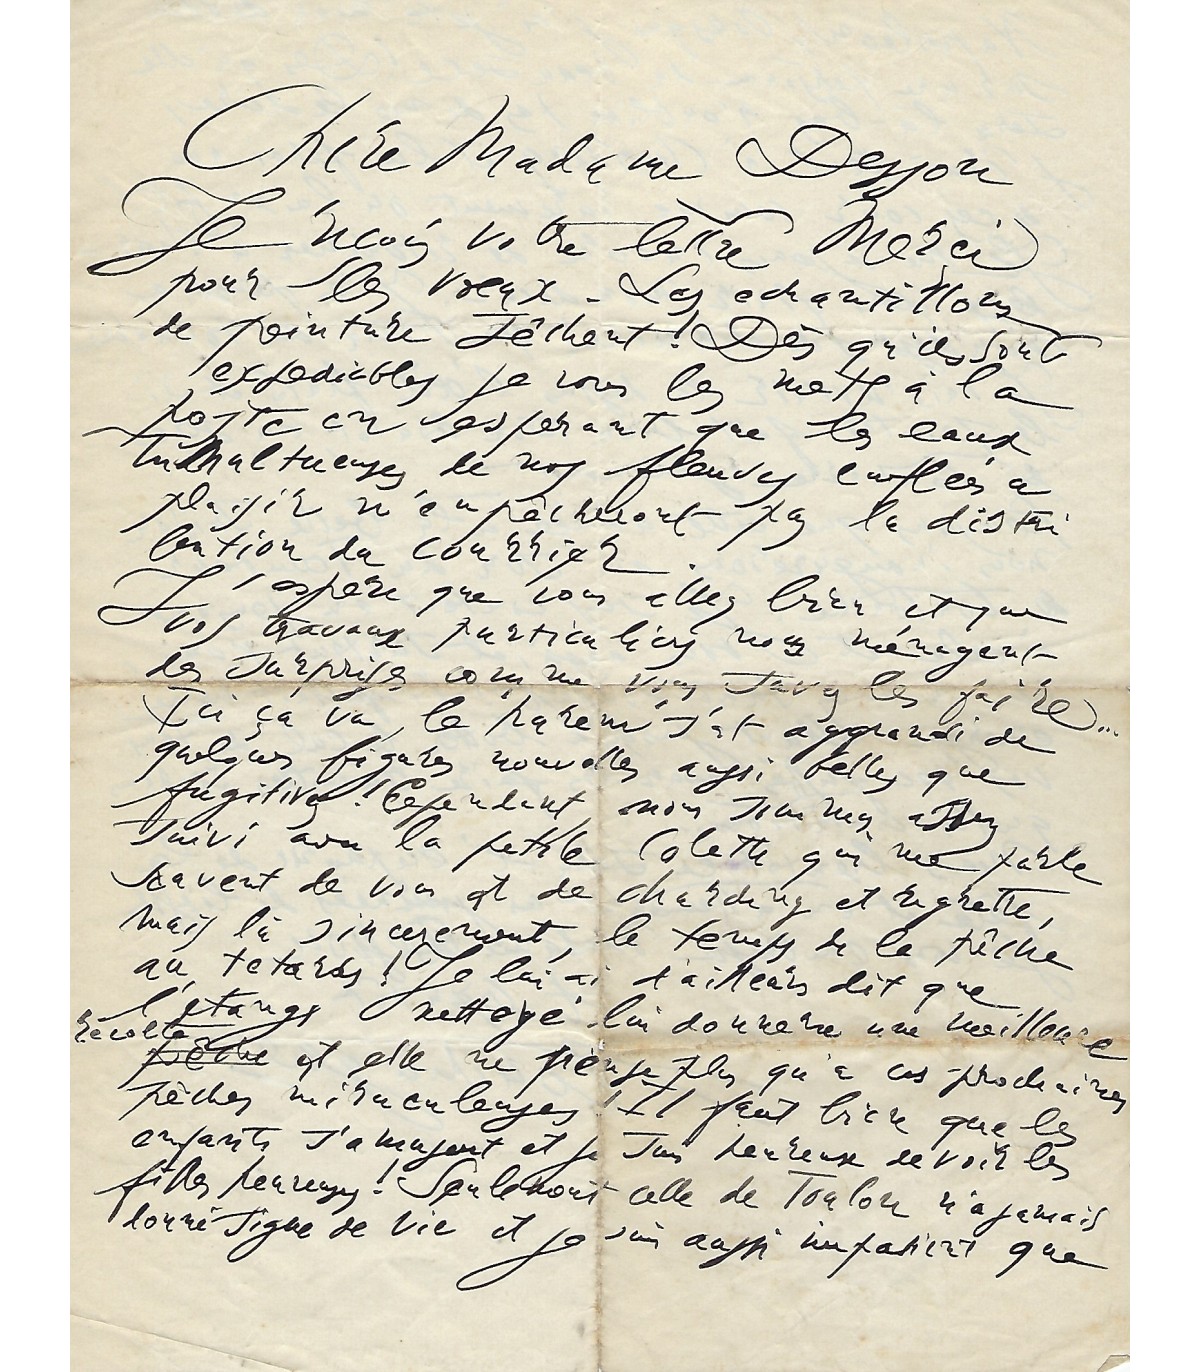 Chère Madame Desson
Je reçois votre lettre Merci
pour les voeux - Les echantillons
de peinture sèchent ! Dès qu'ils sont
expediables je vous les mets à la
poste en esperant que les eaux
tumultueuses de nos fleuves enflées a
plaisir n'empêcheront pas la distri
bution du courrier.
J'espère que vous allez bien et que
vos travaux particuliers nous ménagent
des surprises comme vous savez les faire...
Ici ça va, le s'est aggrandi de
quelques figures nouvelles aussi belles que
fugitives ! Cependant nous sommes assez
suivi avec la petite Colette qui me parle
souvent de vous et de et regrette,
mais là sincerement, le temps de la pêche
au tetards ! Je lui ai d'ailleurs dit que
l'étangs nettoyé lui donnera une meilleure
récolte
pêche et elle ne pense plus qu'a ces prochaines
pêches miraculeuses ! Il faut bien que les
enfants s'amusent et je suis heureux de voir les
filles heureuses ! Seulement celle de Toulon n'a jamais
donné signe de vie et je suis aussi impatient que